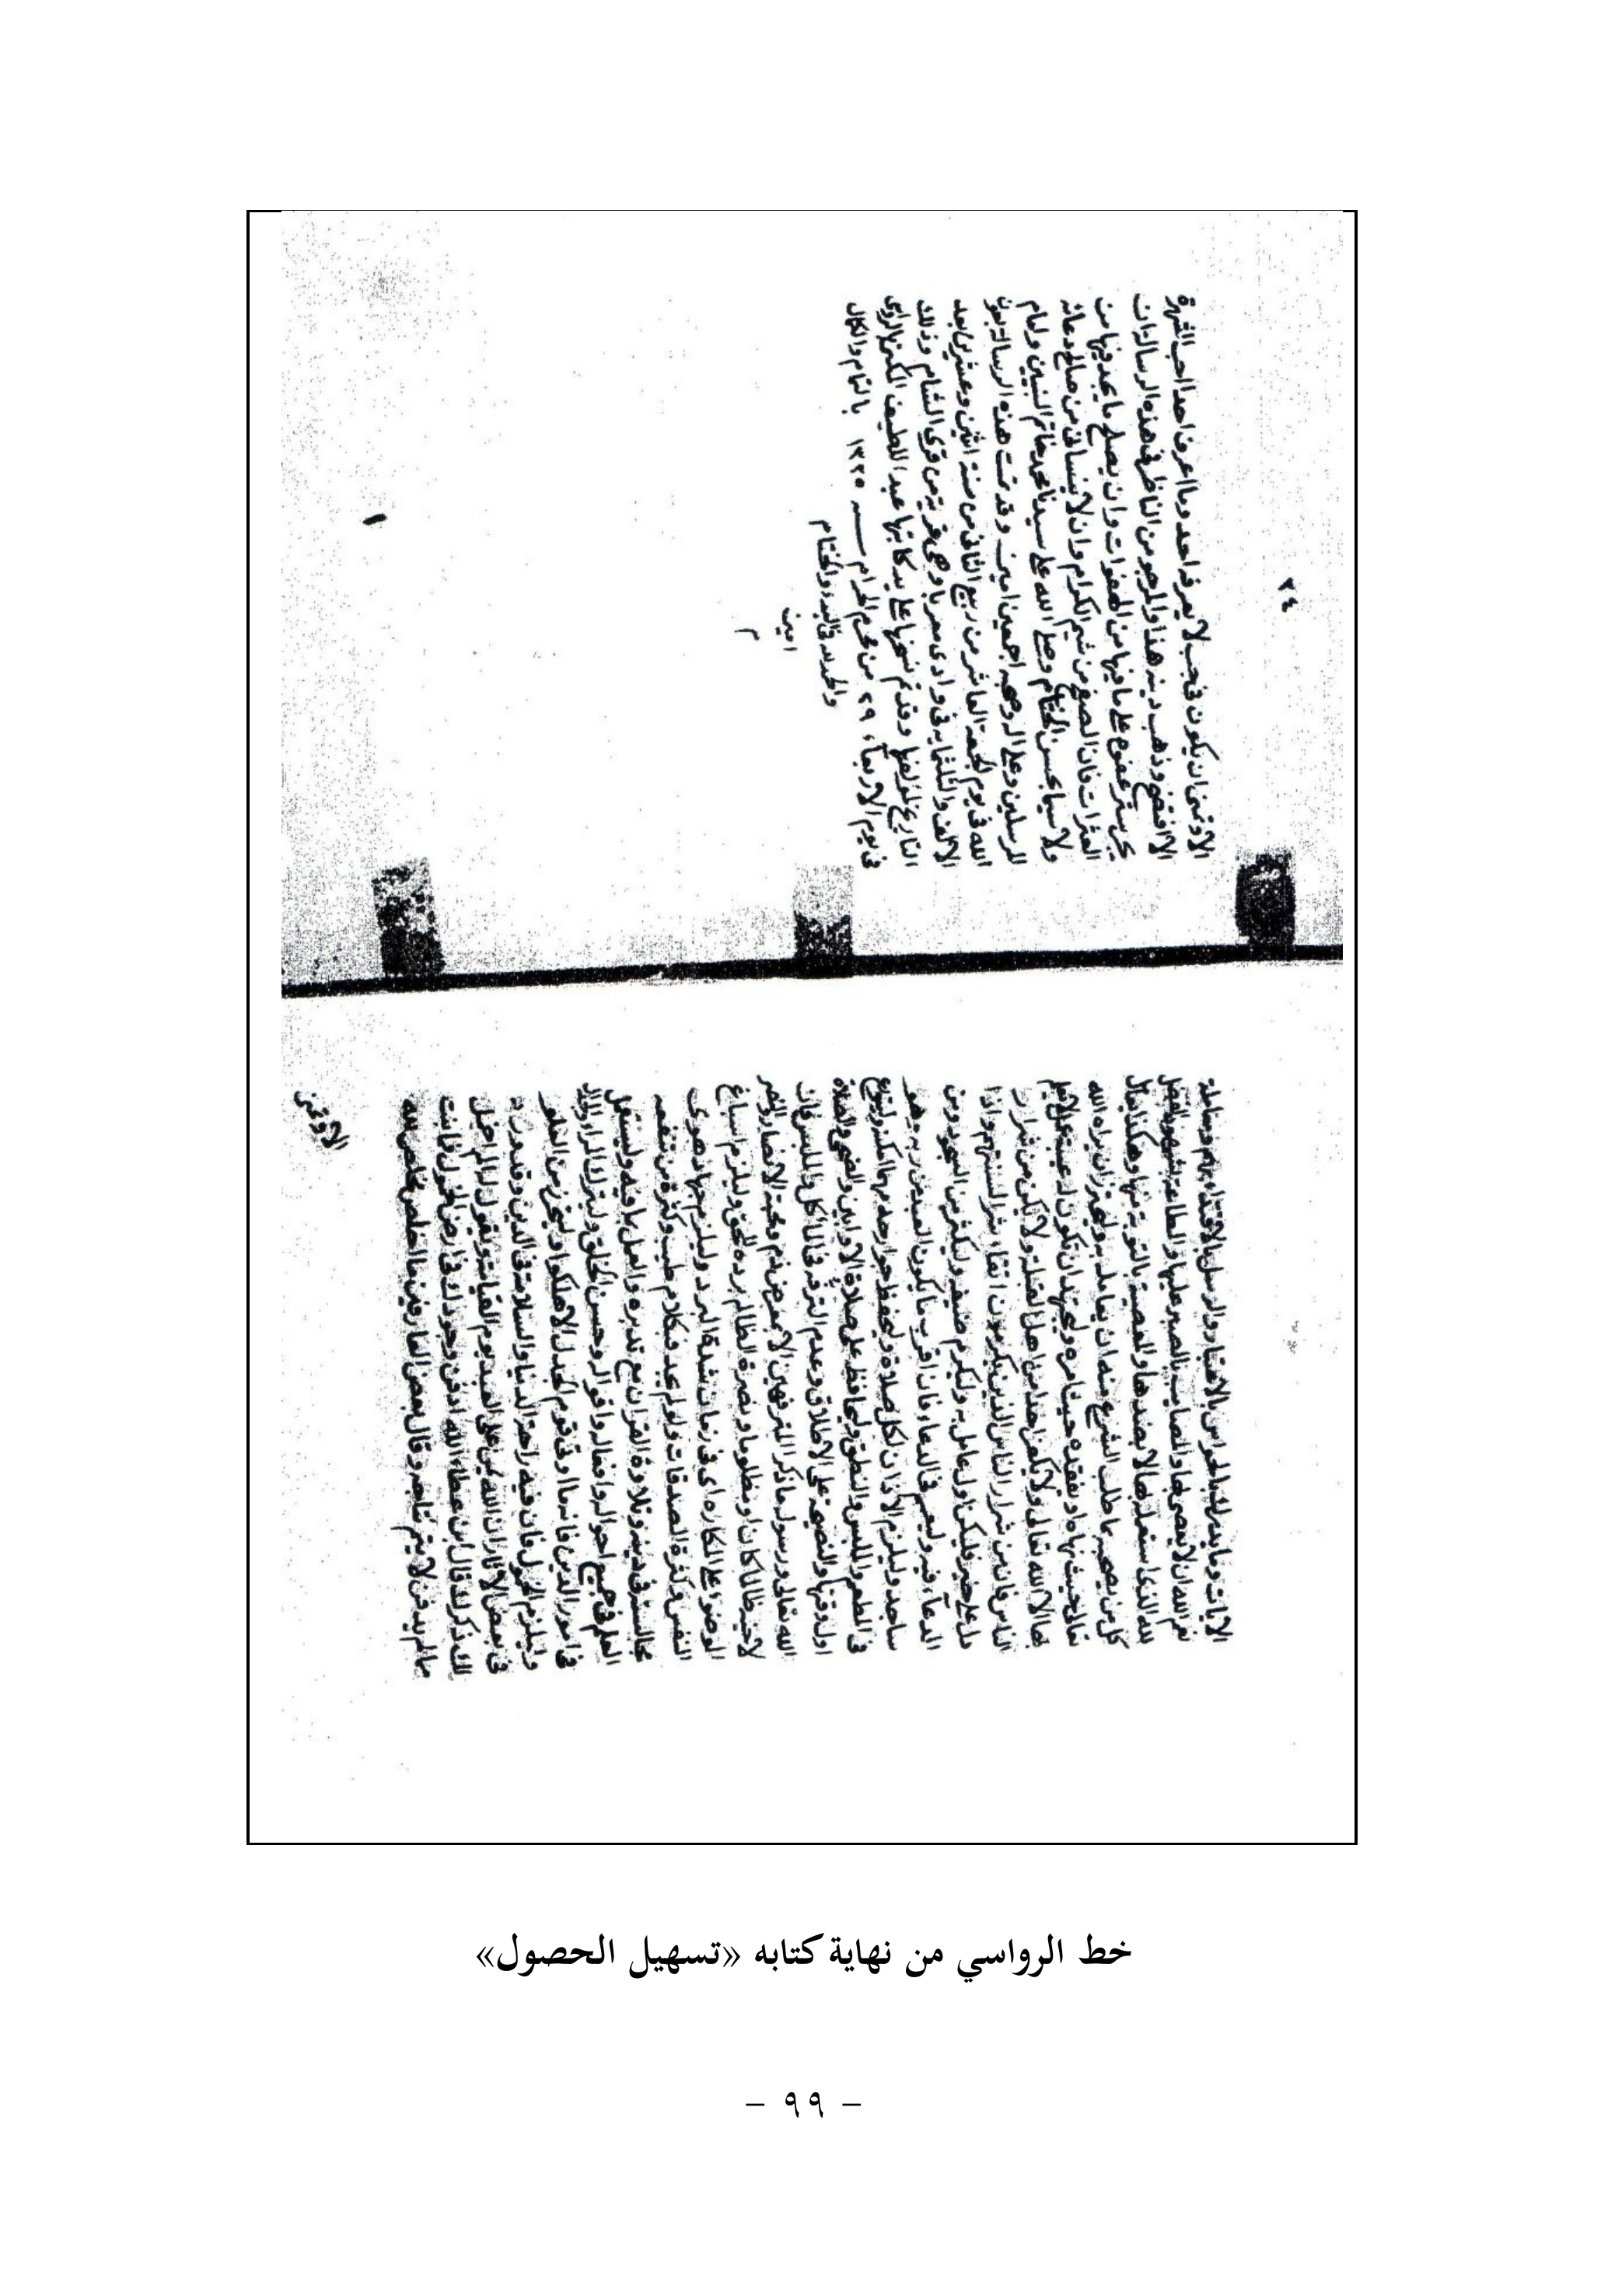 الايات وما يدرك بالحواس بالاعتبار والرسل بالاقتداء بهم ومقابلة
نعم الله ان لا يعصى بها والمصايب بالصبر عليها والطاعة بشهود الفضل
لله الذي استعمله بها لا بضدها والمعصية بالتوبة منها وهكذا يعامل
كل من يصحبه بما طلب الشرع منه ان يعامله به وليحذر ان يراه الله
تعالى حيث نهاه او يفقده حيث امره وليجتهد ان تكون له خبية عمل لا يعلم
بها الا الله تعالى ولا يكفر احدا من اهل القبلة ولا يكن من شرار
الناس فان من شرار الناس الذين يكرمون اتقاء شر السنتهم واذا
دل على خير فليكن اول عامل به وليكرم ضيفه وليكثر من السجود ومن
الدعاء فيه وليعم في الدعاء فان اقرب ما يكون العبد من ربه وهو
ساجد وليلزم الاذان لكل صلاة وليحفظ جوارحه مهما امكنه وليتورع
في المطعم والملبس والنطق وليحافظ على صلاة الاوابين والضحى والصلاة
اول وقتها والنصيحة على الاطلاق وعدم الترفه في المأكل والملبس فان
الله تعالى ورسوله ما ذكرا المترفهين الا بمعرض ذم ومحبة الانصار ونصر
لاخيه ظالما كان او مظلوما ونصرة الظالم برده للحق وليلزم اسباغ
الوضوء على المكاره اي في زمان شدة البرد وليلزم جهاد هوى
النفس وكثرة الصدقات ولو لم يجد فبكلام طيب وكثرة من تنفعه
مجالسته في دينه وتلاوة القران مع تدبره والعمل بما فيه وليستعمل
العلم في جميع احواله وافعاله واقواله وحسن الخلق وليترك المراء والجدال
في امور الدين فانه ما اوتي قوم الجدل الا هلكوا وليتحرز من الغلو
وليلزم الخمول فان فيه راحة الدنيا والسلامة في الدين وقد ورد
في بعض الاثار ان الله يمن على العبد يوم القيامة ويقول له الم اخمل
لك ذكرك قال ابن عطاء الله ادفن وجودك في ارض الخمول فما نبت
مما لم يدفن لا يتم نتاجه وقال بعض العارفين ما اخلص مخلص لله
الا وتمنى
٢٤
الا وتمنى ان يكون في جب لا يعرفه احد وما اعرف احدا احب الشهرة
الا افتضح وذهب دينه هذا والمرجو من الناظر في هذه الرسالة ان
يجر ستر عفوه على ما فيها من الهفوات وان يصلح ما يجد فيها من
العثرات فان الصفح من شيم الكرام وان لا ينساني من صالح دعائه
ولا سيما بحسن الختام وصلى الله على سيدنا محمد خاتم النبيين وامام
المرسلين وعلى اله وصحبه اجمعين امين وقد تمت هذه الرسالة بعون
الله في يوم الجمعة العاشر من ربيع الثاني من سنة اثنين وعشرين بعد
الالف والثلثماية في وادي معربا وهي قرية من قرى الشام وذلك
التاريخ لمؤلفها وقد تم نسخها على يد كاتبها عبد اللطيف الكبتي الرواسي
في يوم الاربعاء ٢٩ من محرم الحرام سنة ١٣٢٥ بالتمام والكمال
والحمد لله في البدء والختام
امين
م
خط الرواسي من نهاية كتابه «تسهيل الحصول»
- ٩٩ -